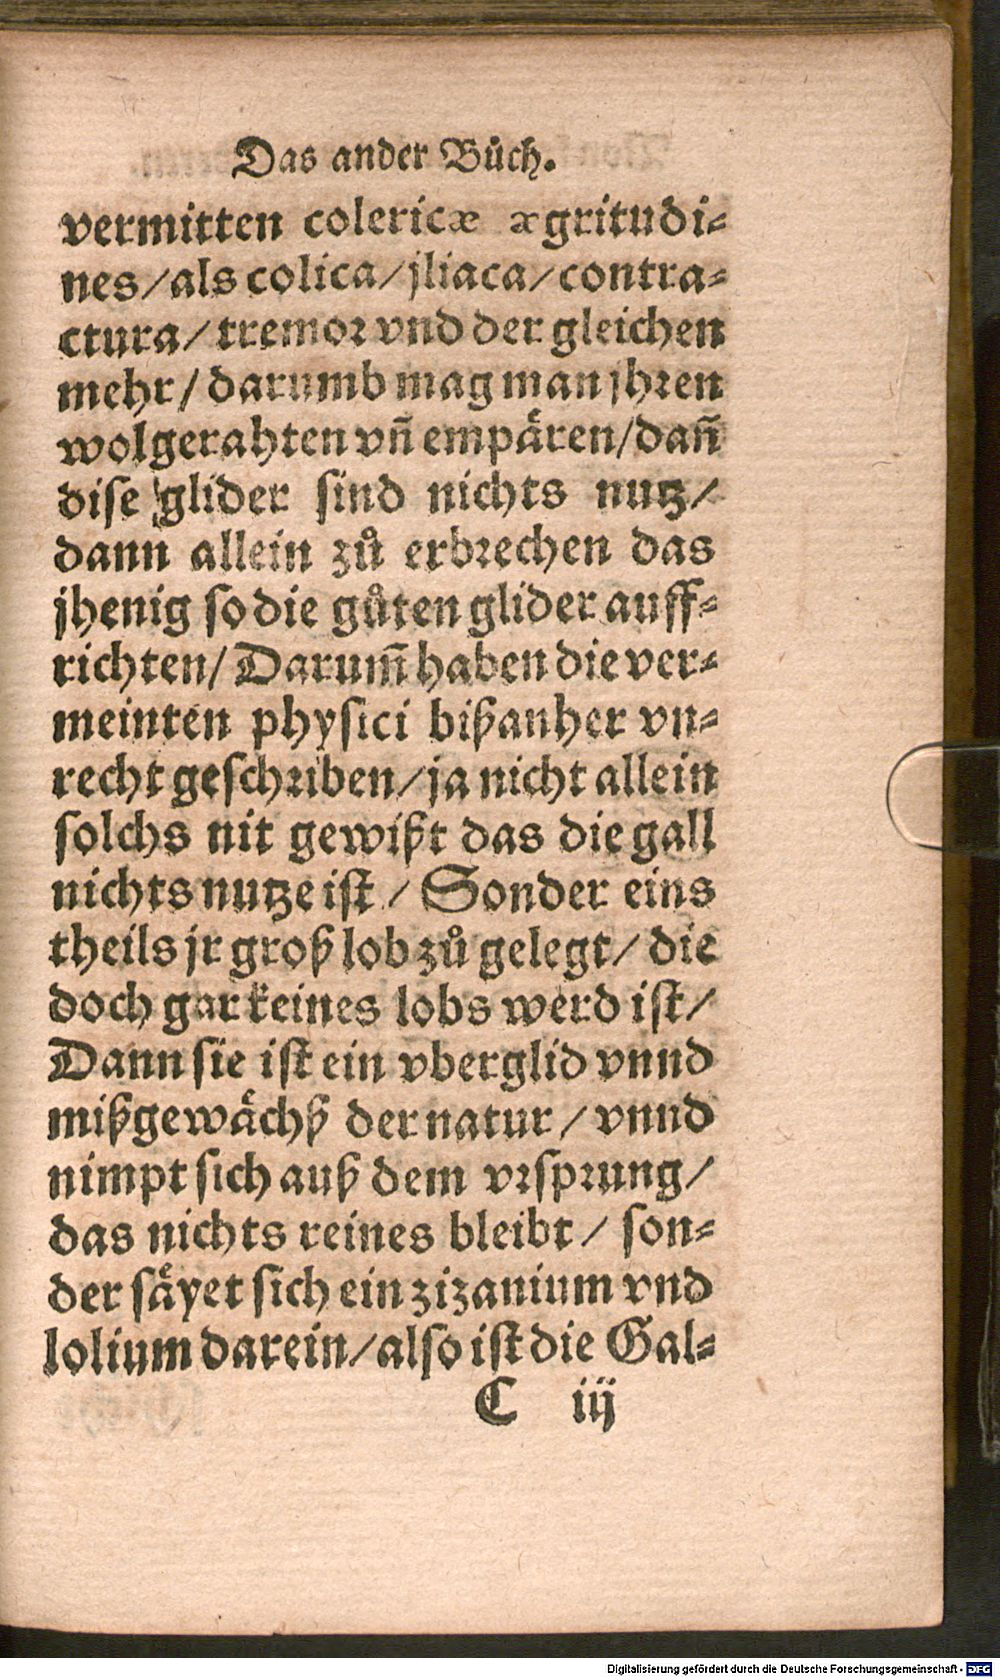 Das ander Bůch.
vermitten colericæ ægritudi⸗
nes/als colica/jliaca/contra⸗
ctura/tremor vnd der gleichen
mehr/darumb mag man jhren
wolgerahten vñ empären/dañ
dise glider sind nichts nutz/
dann allein zů erbrechen das
jhenig so die gůten glider auff⸗
richten/Darum̃ haben die ver⸗
meinten physici bißanher vn⸗
recht geschriben/ja nicht allein
solchs nit gewißt das die gall
nichts nutze ist/Sonder eins
theils jr groß lob zů gelegt/die
doch gar keines lobs werd ist/
Dann sie ist ein vberglid vnnd
mißgewächß der natur/vnnd
nimpt sich auß dem vrsprung/
das nichts reines bleibt/son⸗
der säyet sich ein zizanium vnd
lolium darein/also ist die Gal⸗
C iij
Digitalisierung gefördert durch die Deutsche Forschungsgemeinschaft - DFG